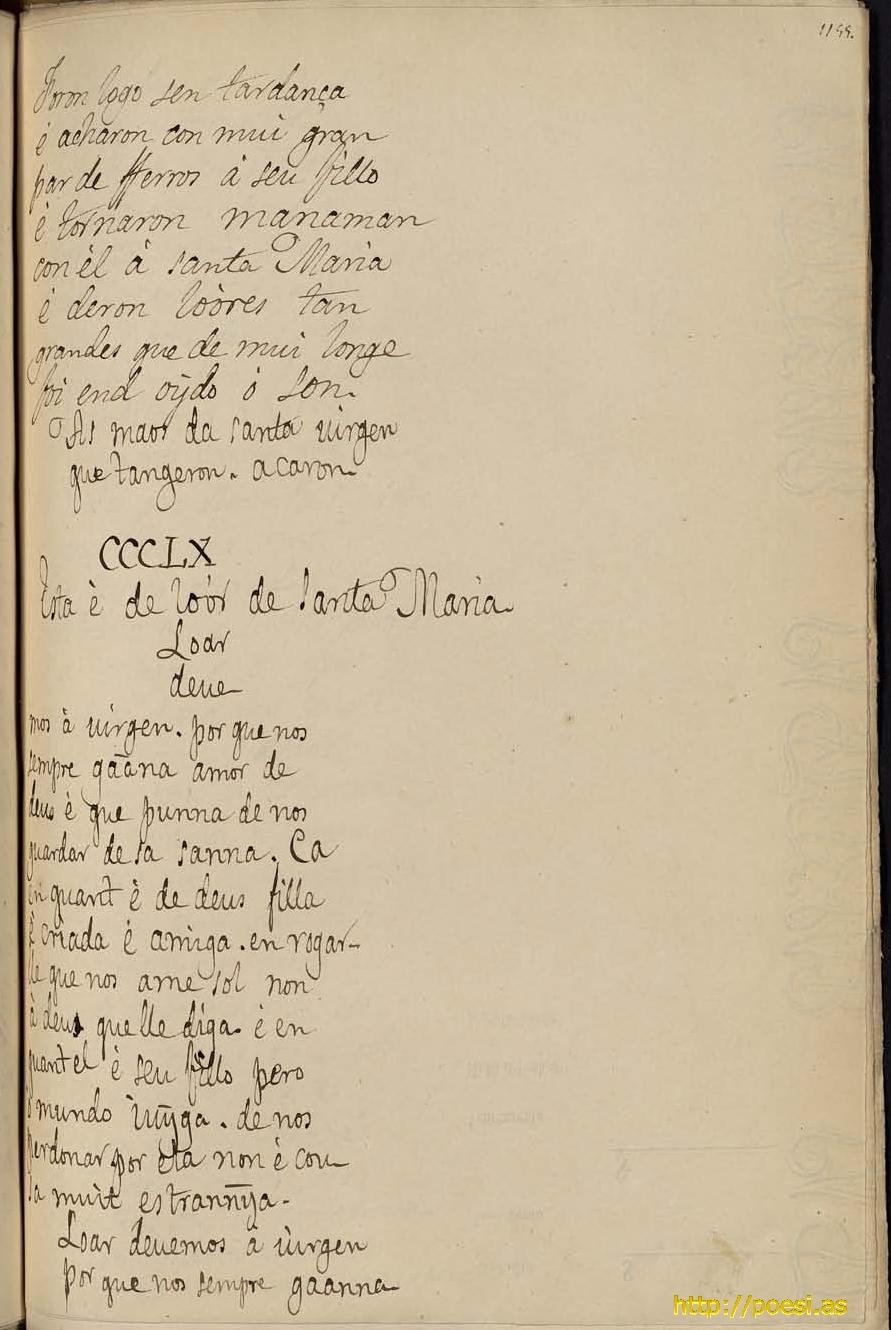 1199.
Foron logo sen tardança
é acharon con mui gran
par de fferros á seu fillo
é tornaron manaman
con él á santa Maria
é deron lòòres tan
grandes que de mui longe
foi end oÿdo ó son.
As maos da santa uirgen
que tangeron. acaron.
CCCLX
Esta è de lòór de santa Maria.
Loar
deue
mos à uirgen. por que nos
sempre gaãna amor de
deus è que punna de nos
guardar de sa sanna. Ca
en quant è de deus filla
è criada é amiga. en rogar-
lle que nos ame sol non
à deus que lle diga. é en
quant el è seu fillo pero
o mundo iuÿga. de nos
perdonar por ela non è cou
sa muit estrannÿa.
Loar deuemos à uirgen
por que nos sempre gaanna
http://poesi.as